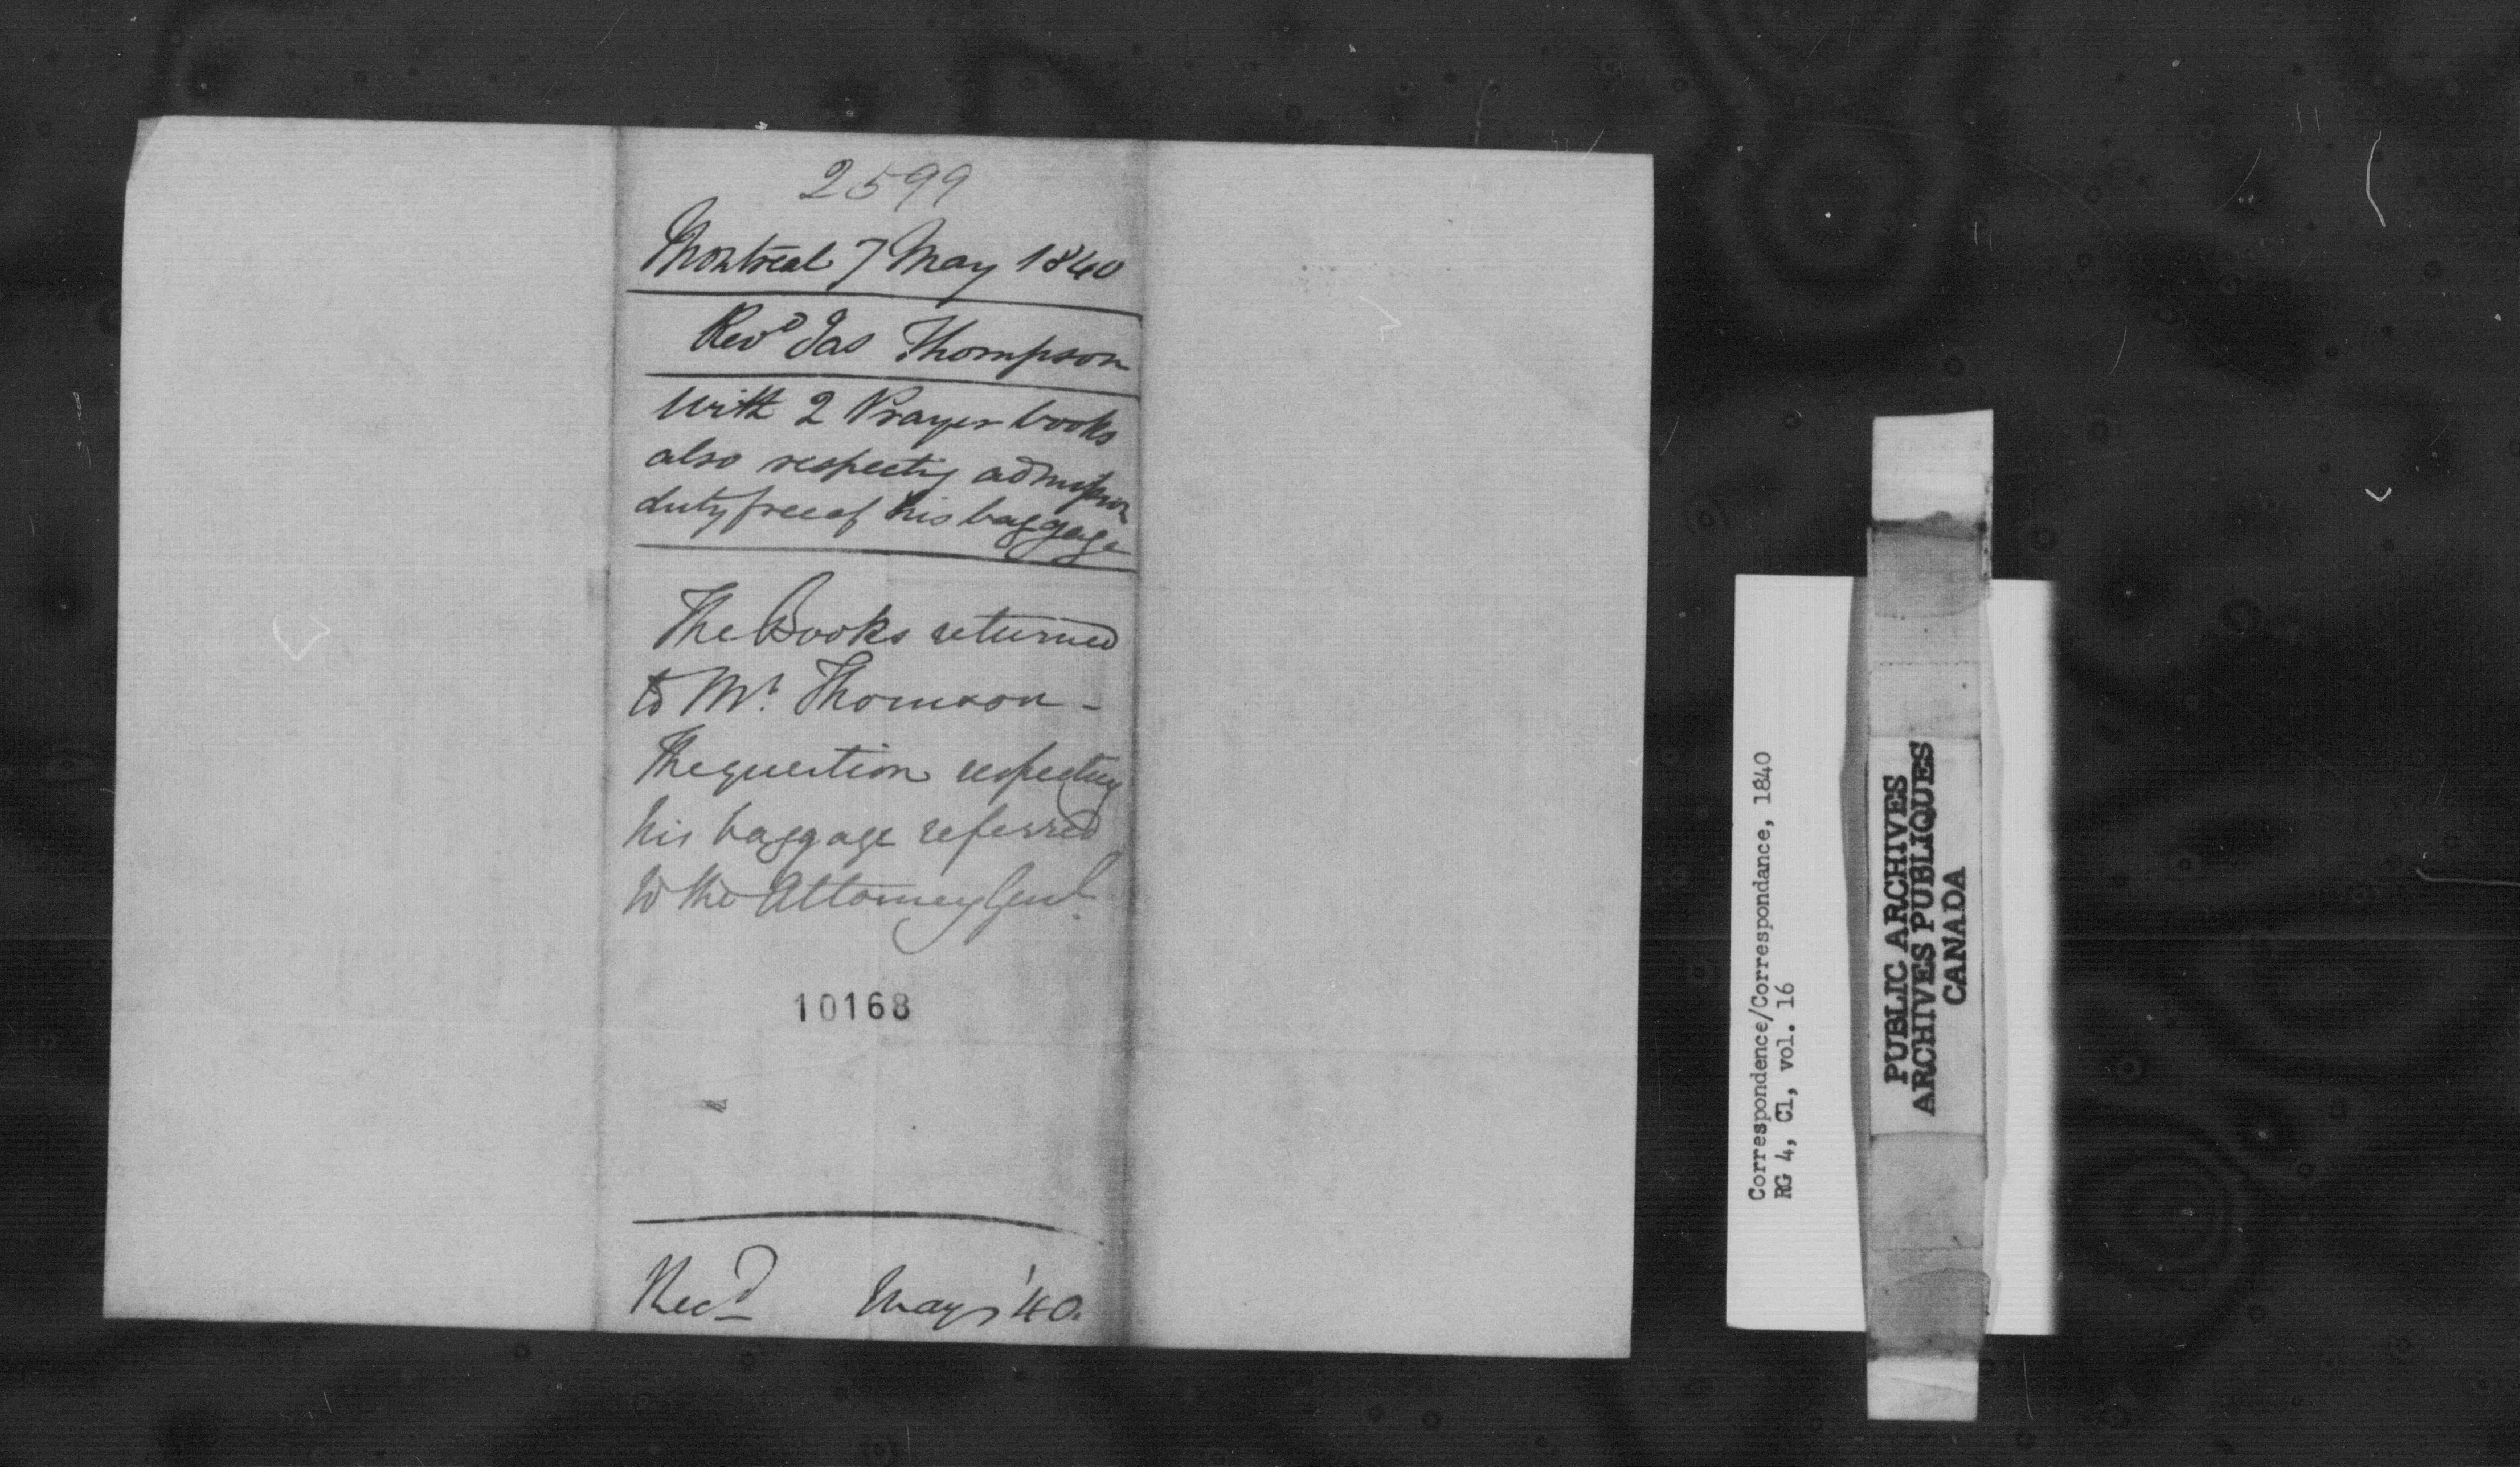 2599
Montreal 7 May 1840
Revd Jas Thompson
With 2 Prayer books
also respecting admission
duty free of his baggage
The Books returned
to Mr. Thomson -
The question respecting
his baggage referred
to the Attorney Genl.
10168
Recd May '40.
Correspondence/Correspondance, 1840
RG 4, C1, vol. 16
PUBLIC ARCHIVES
ARCHIVES PUBLIQUES
CANADA